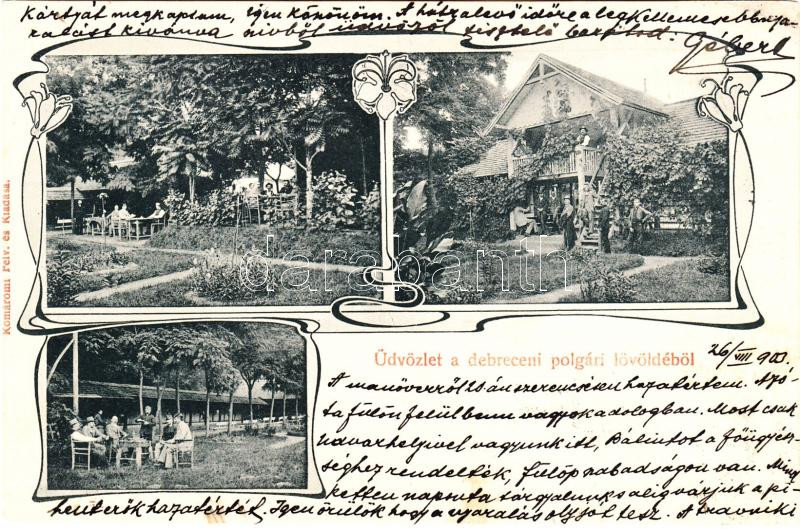 Kártyját megkaptam, igen köszönöm. A hátralevő időre a legkellemesebb nya-
ralást kívánva szívből üdvözöl tisztelő barátod. Gébert
Komáromi Felv. és Kiadása.
darabanth
Üdvözlet a debreceni polgári lövöldéből
26/VIII 903.
A manőverről 25án szerencsésen hazatértem. Azó-
ta fülön felül benn vagyok a dologban. Most csak
Udvarhelyivel vagyunk itt, Bálintot a főügyész-
séghez rendelték, Fülöp szabadságon van. Mind
ketten naponta tárgyalunk s alig várjuk a pi-
henterők hazatértét. Igen örülök hogy a nyaralás oly jót tesz. A